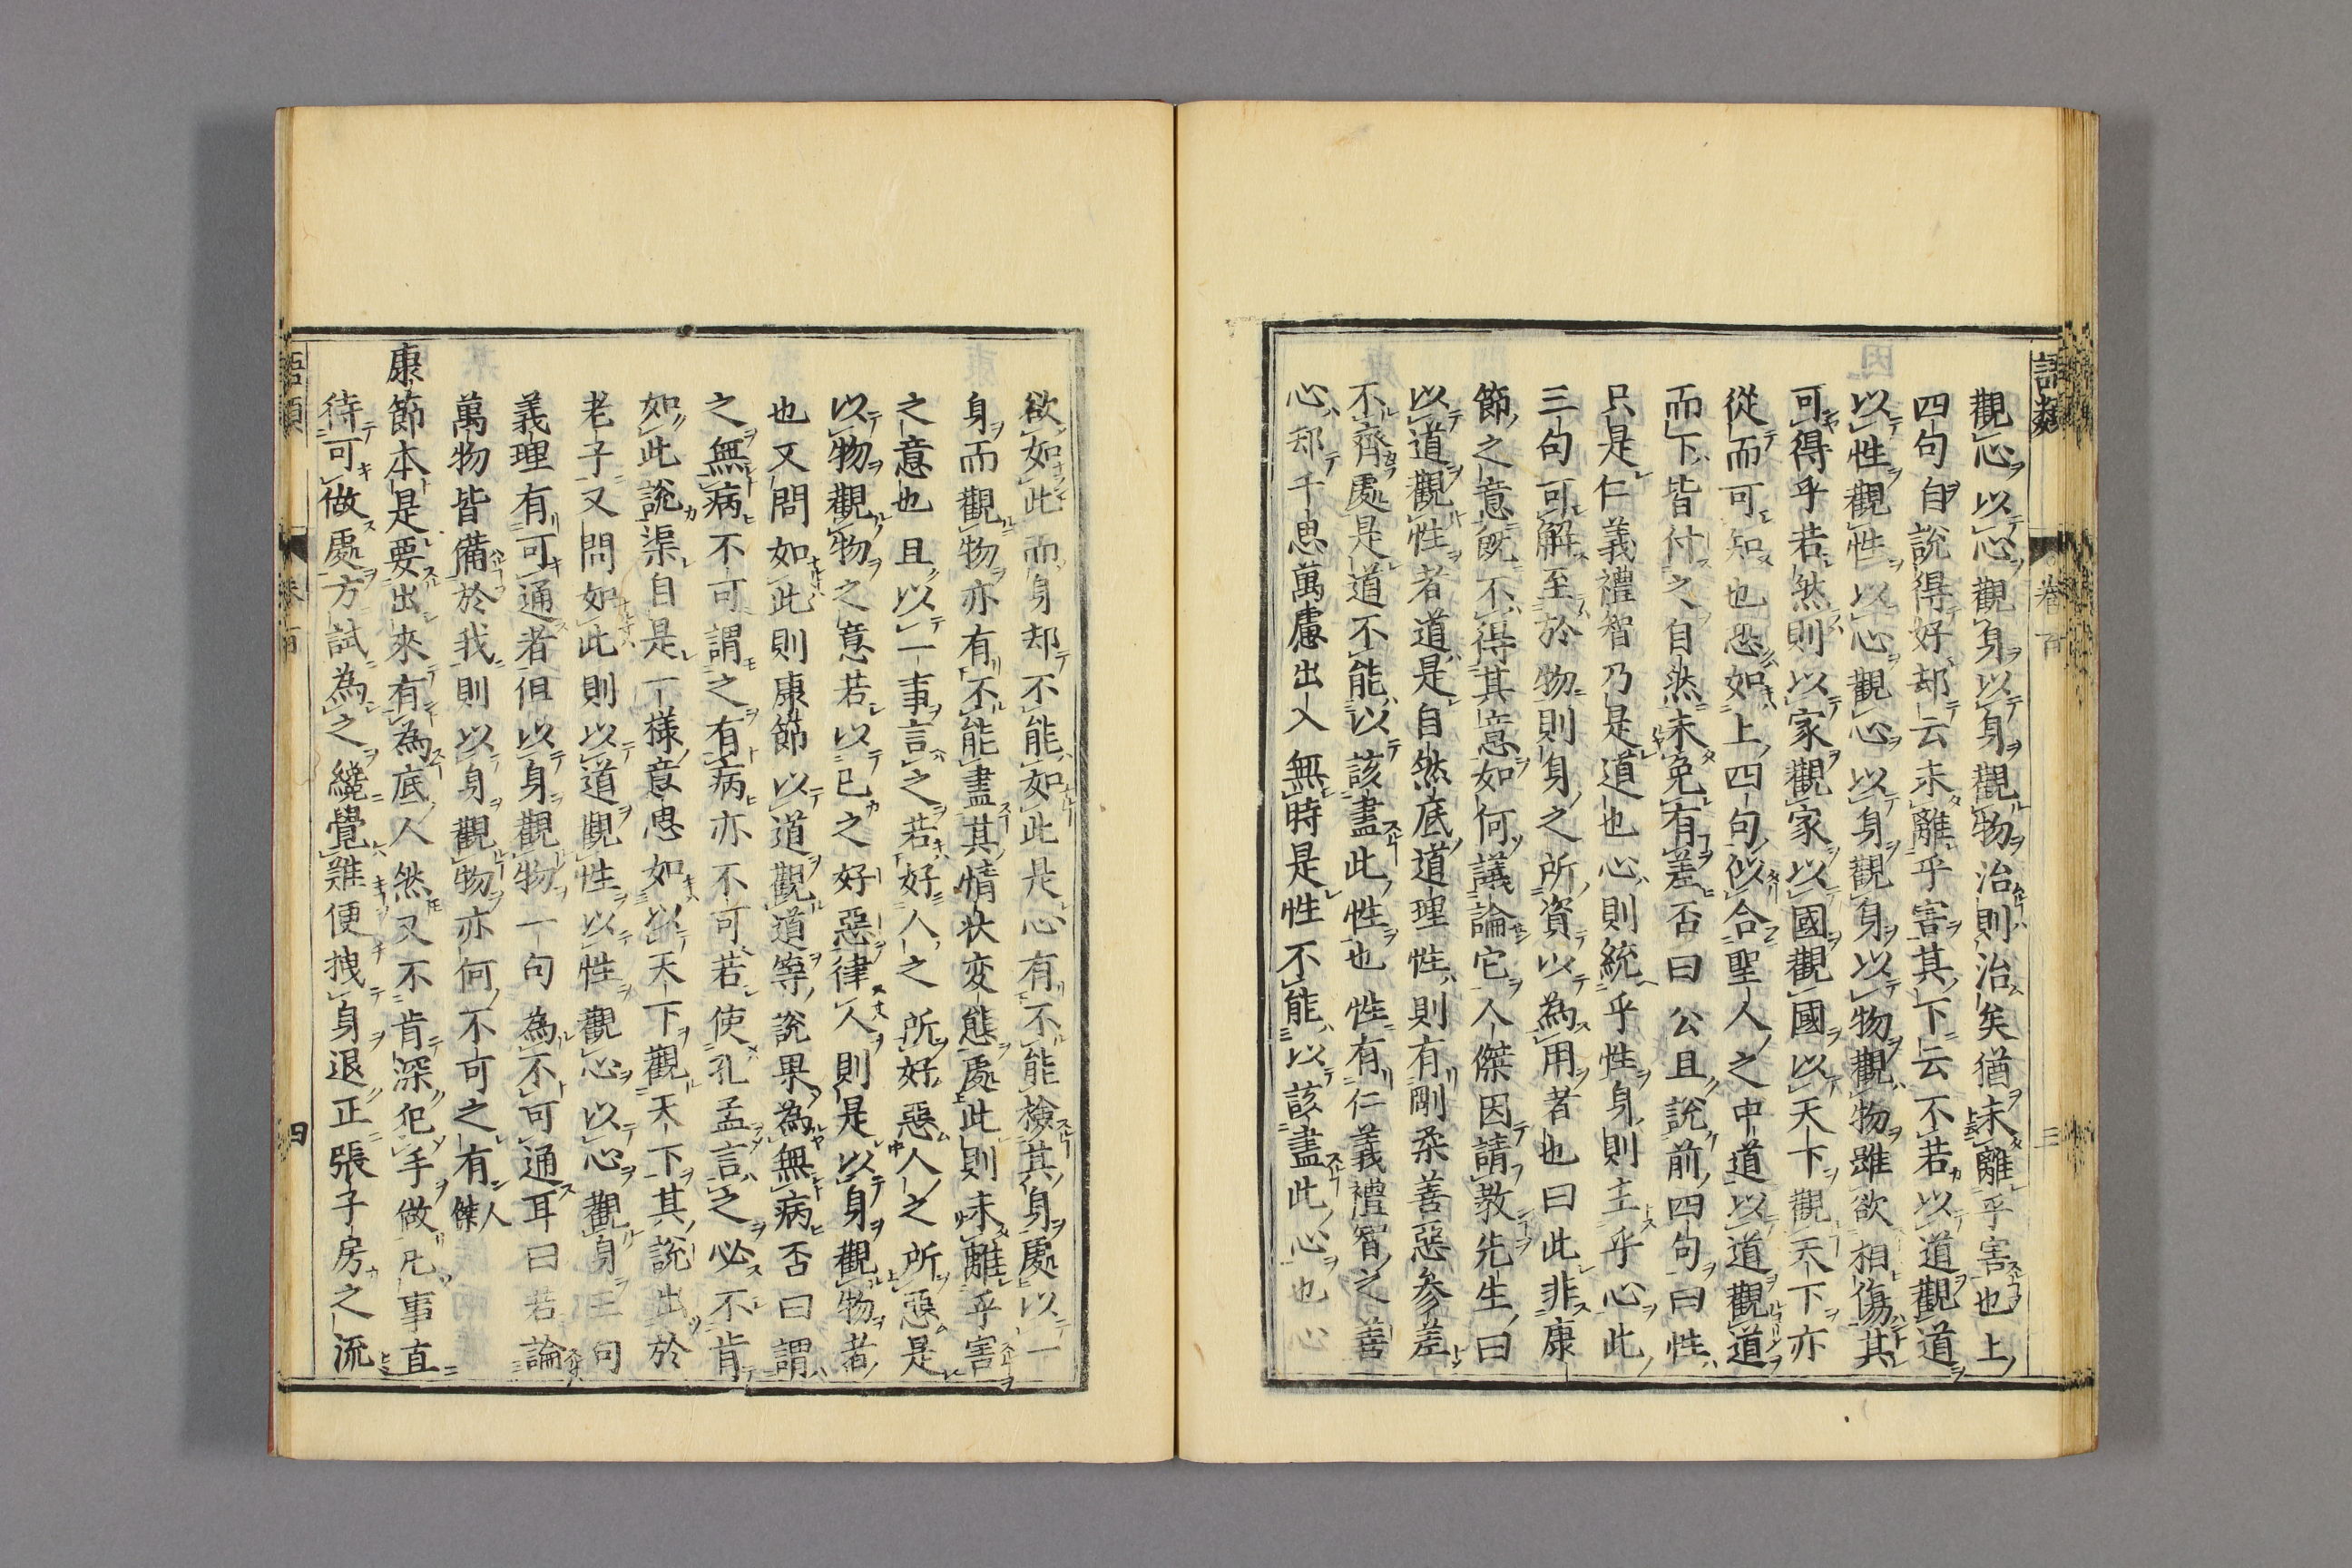 語類
卷百
三
觀心以心觀身以身觀物治則治矣猶未離乎害也上
四句自說得好却云未離乎害其下云不若以道觀道
以性觀性以心觀心以身觀身以物觀物雖欲相傷其
可得乎若然則以家觀家以國觀國以天下觀天下亦
從而可知也恐如上四句似合聖人之中道以道觀道
而下皆付之自然未免有差否曰公且說前四句曰性
只是仁義禮智乃是道也心則統乎性身則主乎心此
三句可解至於物則身之所資以為用者也曰此非康
節之意既不得其意如何議論它人傑因請教先生曰
以道觀性者道是自然底道理性則有剛柔善惡參差
不齊處是道不能以該盡此性也性有仁義禮智之善
心却千思萬慮出入無時是性不能以該盡此心也心
欲如此而身却不能如此是心有不能檢其身處以一
身而觀物亦有不能盡其情狀变態處此則未離乎害
之意也且以一事言之若好人之所好惡人之所惡是
以物觀物之意若以己之好惡律人則是以身觀物者
也又問如此則康節以道觀道等說果為無病否曰謂
之無病不可謂之有病亦不可若使孔孟言之必不肯
如此說渠自是一樣意思如以天下觀天下其說出於
老子又問如此則以道觀性以性觀心以心觀身三句
義理有可通者但以身觀物一句為不可通耳曰若論
萬物皆備於我則以身觀物亦何不可之有人傑
康節本是要出來有為底人然又不肯深犯手做凡事直
待可做處方試為之纔覺難便拽身退正張子房之流
語類
卷百
四